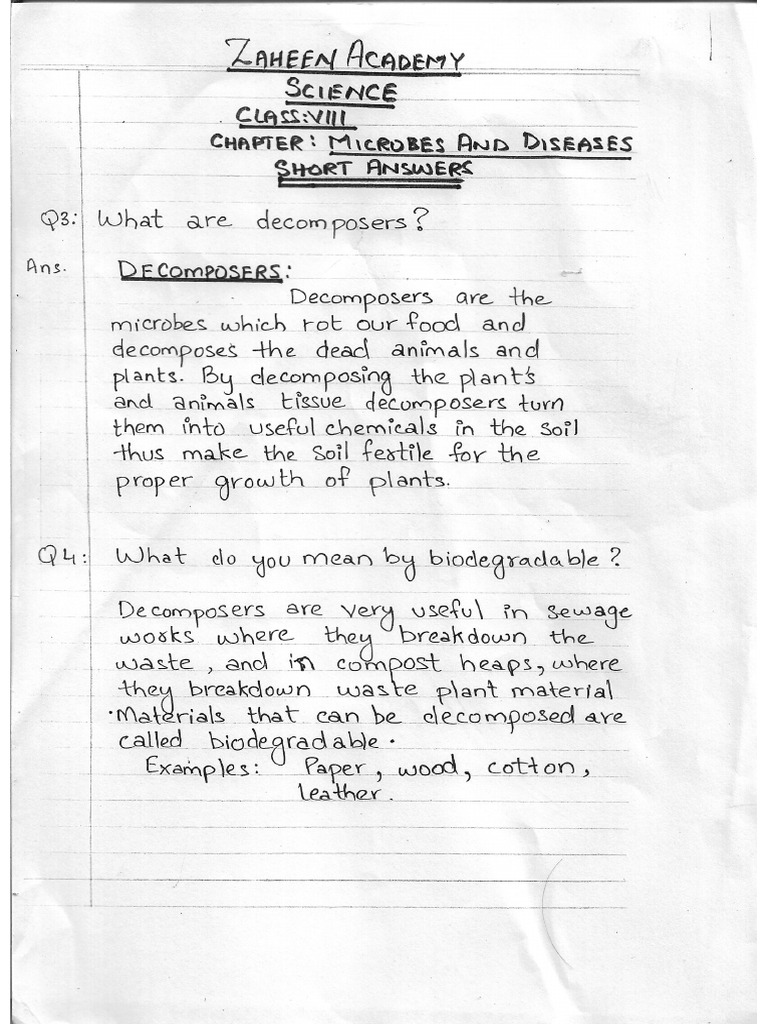 ZAHEEN ACADEMY
SCIENCE
CLASS:VIII
CHAPTER: MICROBES AND DISEASES
SHORT ANSWERS
Q3: What are decomposers?
Ans. DECOMPOSERS:
Decomposers are the
microbes which rot our food and
decomposes the dead animals and
plants. By decomposing the plant's
and animals tissue decomposers turn
them into useful chemicals in the soil
thus make the soil fertile for the
proper growth of plants.
Q4: What do you mean by biodegradable?
Decomposers are very useful in sewage
works where they breakdown the
waste, and in compost heaps, where
they breakdown waste plant material
.Materials that can be decomposed are
called biodegradable.
Examples: Paper, wood, cotton,
leather.